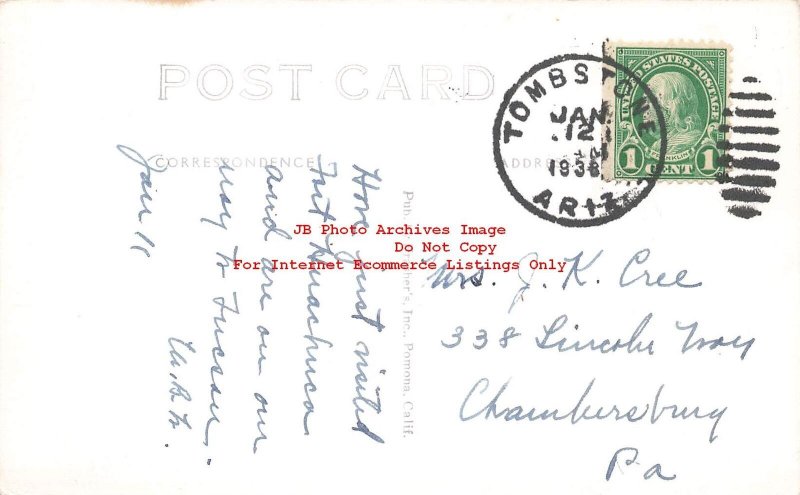 POST CARD
CORRESPONDENCE
ADDRESS
TOMBSTONE
JAN
12
M
1936
ARIZ.
UNITED STATES POSTAGE
FRANKLIN
1 CENT 1
Jan 11
Have just visited
Fort Huachuca
and are on our
way to Tucson.
Pub.
Inc., Pomona, Calif.
JB Photo Archives Image
Do Not Copy
For Internet Ecommerce Listings Only
Mrs. J. K. Cree
338 Lincoln Way
Chambersburg
Pa